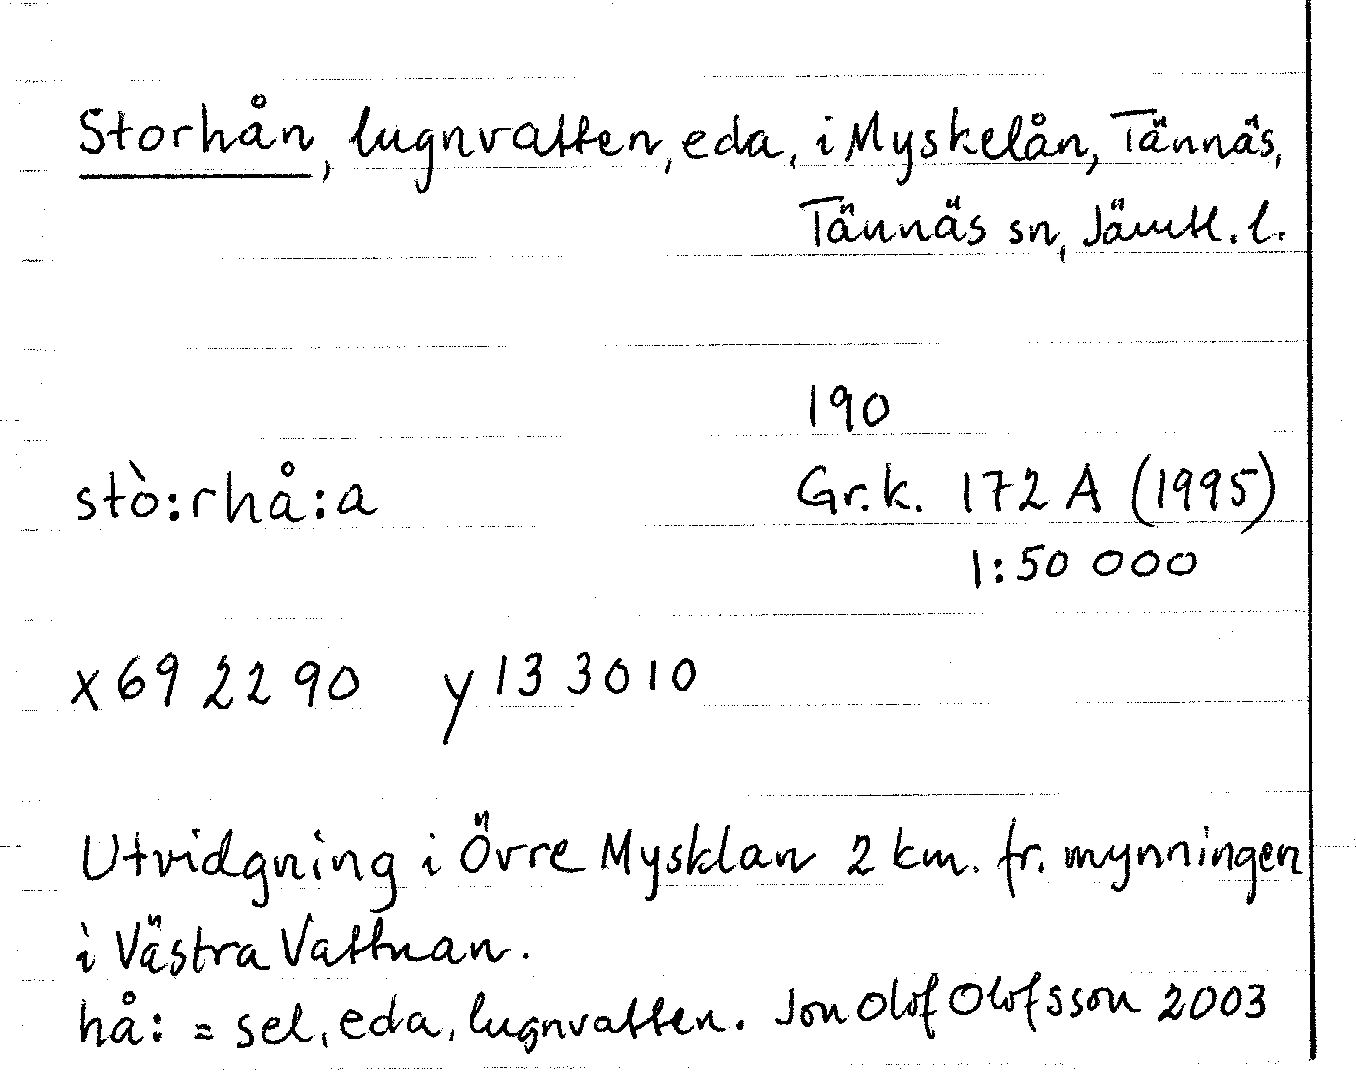 Storhån, lugnvatten, eda, i Myskelån, Tännäs,
Tännäs sn, Jämtl. l.
190
stò:rhå:a Gr.k. 172 A (1995)
1:50 000
x 69 22 90 y 13 30 10
Utvidgning i Övre Mysklan 2 km. fr. mynningen
i Västra Vattnan.
hå: = sel, eda, lugnvatten. Jon Olof Olofsson 2003